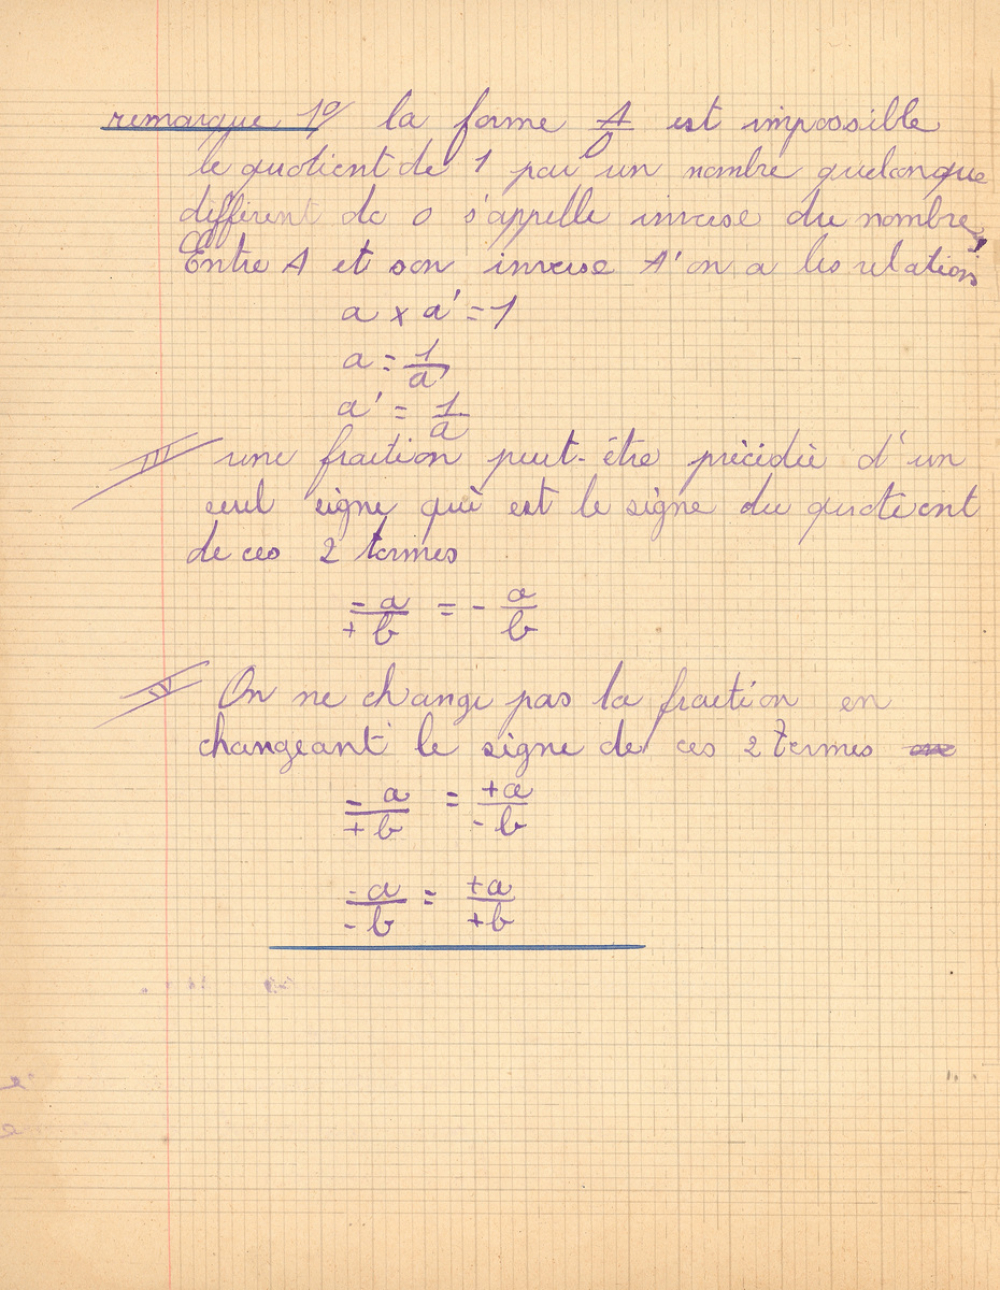 remarque 1º/ la forme A/0 est impossible
le quotient de 1 par un nombre quelconque
différent de 0 s'appelle inverse du nombre,
Entre A et son inverse A' on a les relations
a x a' = 1
a = 1/a'
a' = 1/a
III une fraction peut-être précédée d'un
seul signe qui est le signe du quotient
de ces 2 termes
-a/+b = - a/b
On ne change pas la fraction en
changeant le signe de ces 2 termes
-a/+b = +a/-b
-a/-b = +a/+b